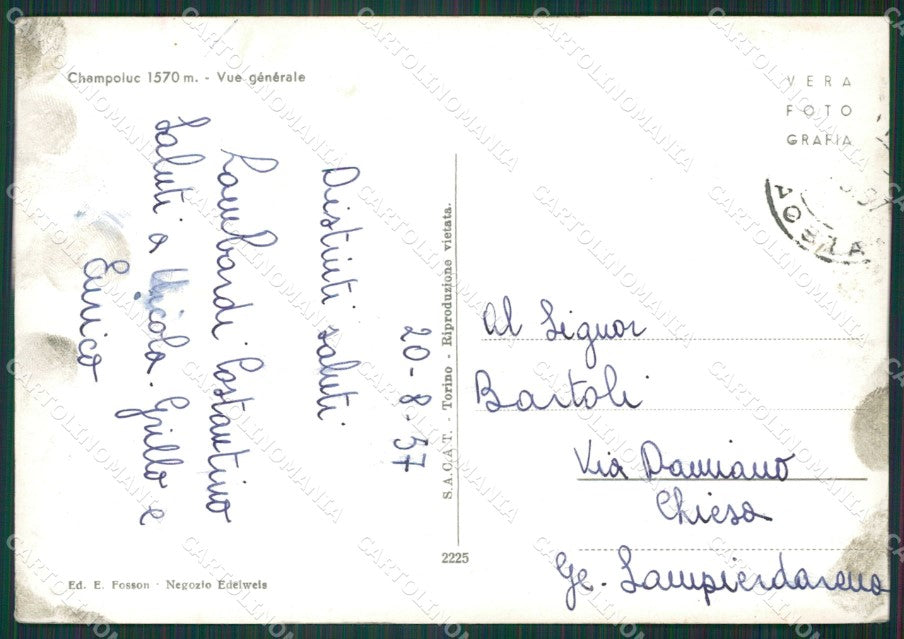 Champoluc 1570 m. - Vue générale
VERA
FOTO
GRAFIA
AOSTA
20-8-57
Distinti saluti
Lombardi Costantino
Saluti a Nicola. Grillo e
Enrico
S.A.C.A.T. - Torino - Riproduzione vietata.
2225
Al Signor
Bartoli
Via Damiano
Chiesa
Ge. Sampierdarena
Ed. E. Fosson - Negozio Edelweis
CARTOLINOMANIA